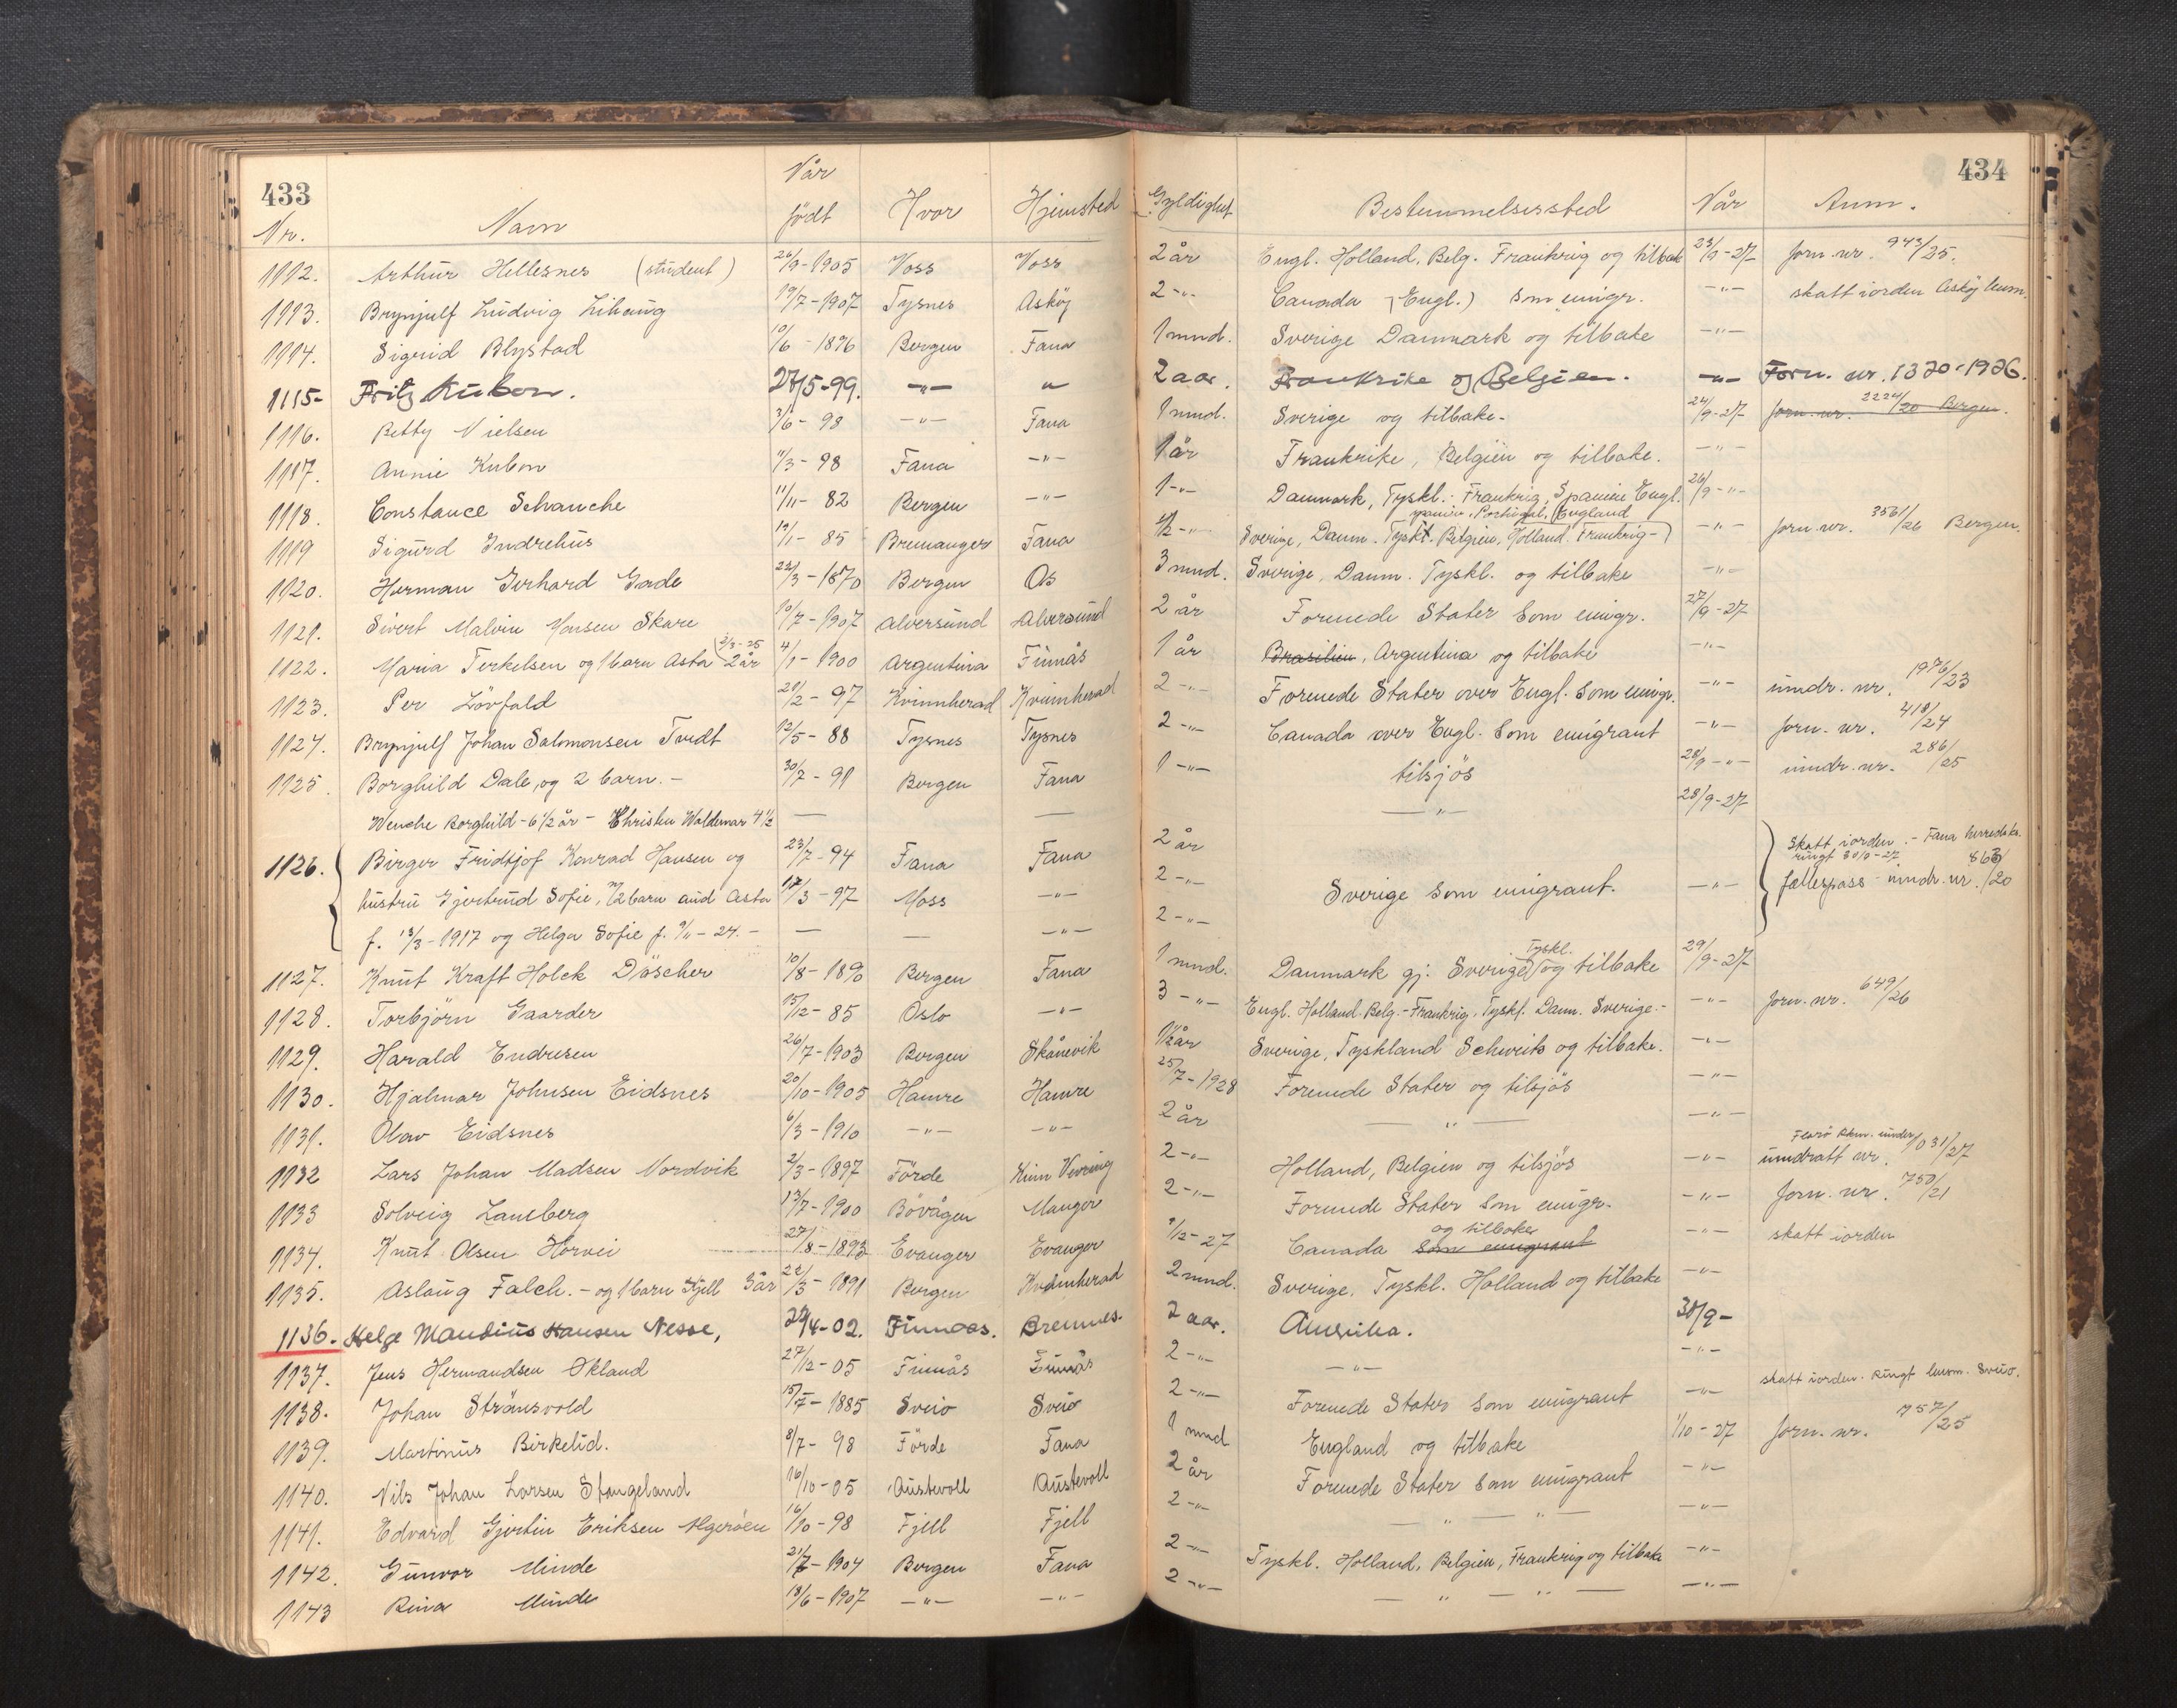 433
434
Nr. Navn Når født Hvor Hjemsted Gyldighet Bestemmelsessted Når Anm.
1112. Arthur Hellesnes (student) 26/9-1905 Voss Voss 2 år Engl. Holland, Belg. Frankrig og tilbake 23/9-27 forn. nr. 943/25.
1113. Brynjulf Ludvig Lihaug 19/7-1907 Tysnes Askøy 2 -"- Canada (Engl.) som emigr. -"- skatt iorden Askøy
1114. Sigrid Blystad 10/6-1896 Bergen Fana 1 mnd. Sverige Danmark og tilbake -"-
1115- Fritz Kubon. 27/5-99. -"- " 2 aar. Frankrike og Belgien. -"- Forn. nr. 1320-1926.
1116. Betty Nielsen 3/6-98 -"- Fana 1 mnd. Sverige og tilbake- 24/9-27 forn. nr. 2224/20 Bergen.
1117. Annie Kubon 11/3-98 Fana -"- 1 år Frankrike, Belgien og tilbake. -"-
1118. Constance Schanche 11/11-82 Bergen -"- 1 -"- Danmark, Tyskl. Frankrig, Spanien Engl. 26/9-"-
Portugal, England
1119 Sigurd Indrehus 19/1-85 Bremanger Fana 1/2 -"- Sverige, Danm. Tyskl. Belgien, Holland Frankrig -"- forn. nr. 3561/26 Bergen.
1120. Herman Gerhard Gade 22/3-1870 Bergen Os 3 mnd. Sverige, Danm. Tyskl. og tilbake -"-
1121. Sivert Malvin Monsen Skare 10/7-1907 Alversund Alversund 2 år Forenede Stater som emigr. 27/9-27
2/3-25
1122. Maria Terkelsen og 1 barn Asta 2 år 4/1-1900 Argentina Finnås 1 år Brasilien, Argentina og tilbake -"-
1123. Per Lövfald 21/2-97 Kvinnherad Kvinnherad 2 -"- Forenede Stater over Engl. som emigr. -"- inndr. nr. 1976/23
1124. Brynjulf Johan Salomonsen Tvedt 12/5-88 Tysnes Tysnes 2 -"- Canada over Engl. som emigrant -"- forn. nr. 418/24
1125. Borghild Dale, og 2 barn.- 30/7-91 Bergen Fana 1 -"- tilsjös 28/9-"- inndr. nr. 286/25
Wenche Borghild-6 1/2 år - Christen Waldemar 4 1/2 — — -"- 28/9-27
1126. Birger Fridtjof Konrad Hansen og 23/7-94 Fana Fana 2 år Skatt iorden.- Fana
hustru Gjertrud Sofie, 2 barn Aud Asta 17/3-97 Moss -"- 2 -"- Sverige som emigrant. -"- fællespass inndr. nr. 863/20
f. 13/3-1917 og Helga Sofie f. 9/11-24.- — — -"- 2 -"-
Tyskl.
1127. Knut Kraft Holck Döscher 10/8-1890 Bergen Fana 1 mnd. Danmark gj. Sverige og tilbake 29/9-27
1128. Torbjörn Gaarder 15/12-85 Oslo -"- 3 -"- Engl. Holland Belg.-Frankrig, Tyskl. Danm. Sverige.- -"- forn. nr. 649/26
1129. Harald Endresen 26/7-1903 Bergen Skånevik 1/2 år Sverige, Tyskland Schweits og tilbake. -"-
1130. Hjalmar Johnsen Eidsnes 20/10-1905 Hamre Hamre 25/7-1928 Forenede Stater og tilsjös -"-
1131. Olav Eidsnes 6/3-1910 -"- -"- 2 år — " — -"-
1132 Lars Johan Madsen Nordvik 2/3-1897 Förde Kinn Vevring 2 -"- Holland, Belgien og tilsjös -"- inndratt nr. 1031/27
1133 Solveig Landberg 13/7-1900 Bövågen Manger 2 -"- Forenede Stater som emigr. -"- forn. nr. 750/21
og tilbake
1134. Knut Olsen Horvei 27/8-1893 Evanger Evanger 9/12-27 Canada som emigrant -"- skatt iorden
1135. Aslaug Falch.-og 1 barn Kjell 3 år 22/3-1891 Bergen Kvinnherad 2 mnd. Sverige, Tyskl. Holland og tilbake -"-
1136. Helge Mandius Hansen Nesse, 29/4-02. Finnaas. Bremnes. 2 aar. Amerika. 30/9-
1137. Jens Hermandsen Økland 27/12-05 Finnås Finnås 2 -"- -"- -"-
1138. Johan Stränsvold 15/7-1885 Sveio Sveio 2 -"- Forenede Stater som emigrant -"- skatt iorden. Ringt lensm. Sveio.
1139. Martinus Birkelid. 8/7-98 Förde Fana 1 mnd England og tilbake 1/10-27 forn. nr. 757/25
1140. Nils Johan Larsen Stangeland 16/10-05 Austevoll Austevoll 2 år Forenede Stater som emigrant -"-
1141. Edvard Gjertin Eriksen Algeröen 16/10-98 Fjell Fjell 2 -"- — " — " — -"-
1142. Gunvor Minde 21/7-1904 Bergen Fana 2 -"- Tyskl. Holland, Belgien, Frankrig og tilbake -"-
1143 Rina Minde 18/6-1907 -"- -"- 2 -"- — " — -"-